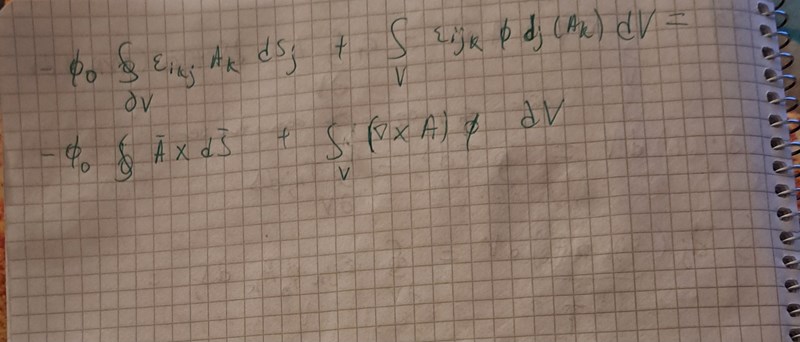 - ϕ₀ ∮_∂V ε_ikj A_k dS_j + ∫_V ε_ijk ϕ ∂_j (A_k) dV =
- ϕ₀ ∮ Ā × dS̄ + ∫_V (∇ × A) ϕ dV